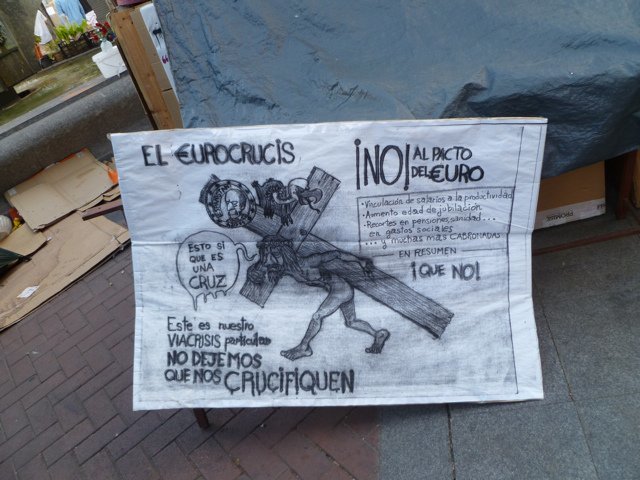 EL €UROCRUCIS
¡NO! AL PACTO
DEL €URO
• Vinculación de salarios a la productividad
• Aumento edad de jubilación
• Recortes en pensiones, sanidad...
en gastos sociales
... y muchas más CABRONADAS
EN RESUMEN
¡QUE NO!
ESTO SÍ
QUE ES
UNA
CRUZ
Este es nuestro
VIACRISIS particular
NO DEJEMOS
QUE NOS CRUCIFIQUEN